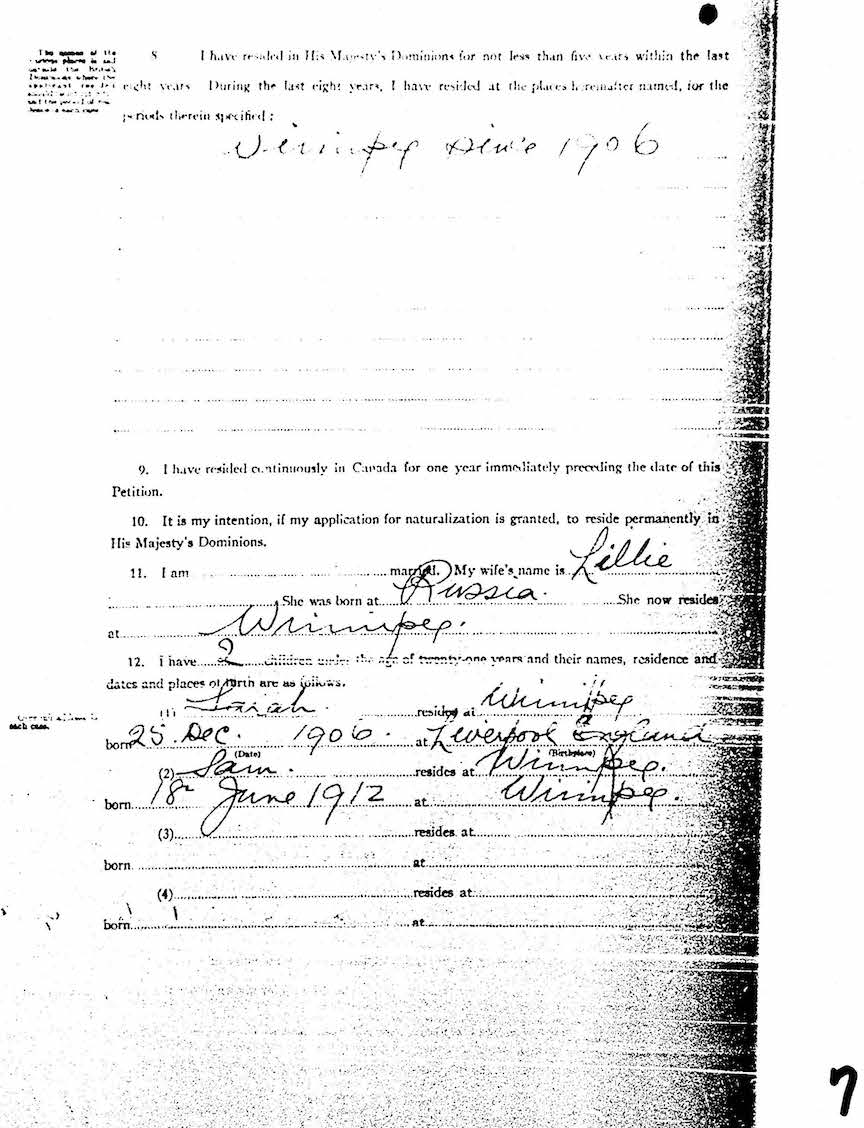 8 I have resided in His Majesty's Dominions for not less than five years within the last
eight years During the last eight years, I have resided at the places hereinafter named, for the
periods therein specified:
Winnipeg since 1906
9. I have resided continuously in Canada for one year immediately preceding the date of this
Petition.
10. It is my intention, if my application for naturalization is granted, to reside permanently in
His Majesty's Dominions.
11. I am married. My wife's name is Lillie
She was born at Russia. She now resides
at Winnipeg.
12. I have 2 children under the age of twenty-one years and their names, residence and
dates and places of birth are as follows.
(1) Sarah. resides at Winnipeg
born 25 Dec. 1906. at Liverpool England
(Date) (Birthplace)
(2) Sam. resides at Winnipeg.
born 18 June 1912 at Winnipeg.
(3) resides at
born at
(4) resides at
born at
each case.
7